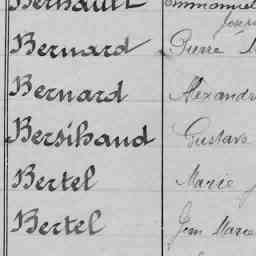 Emmanuel
Bernard Pierre
Bernard Alexandr
Bersihand Gustave
Bertel Marie
Bertel Jean Marie